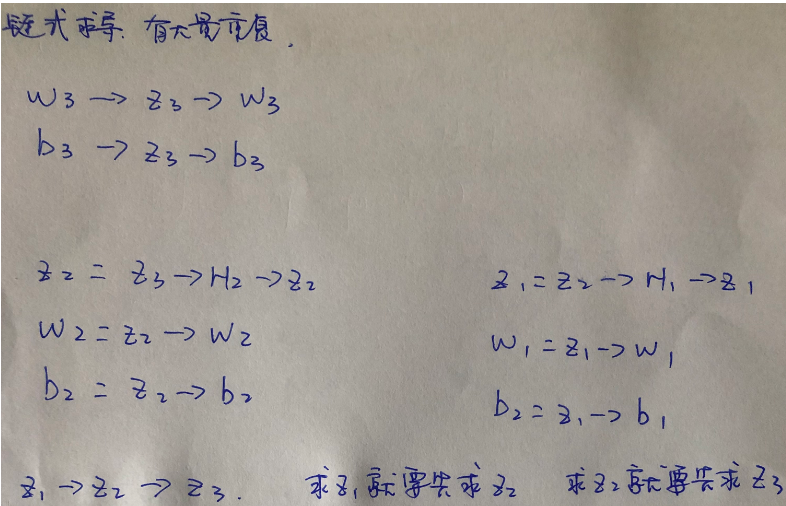 链式求导. 有大量重复.
W3 → Z3 → W3
b3 → Z3 → b3
Z2 = Z3 → H2 → Z2
W2 = Z2 → W2
b2 = Z2 → b2
Z1 = Z2 → H1 → Z1
W1 = Z1 → W1
b2 = Z1 → b1
Z1 → Z2 → Z3. 求Z1就要先求Z2 求Z2就要先求Z3